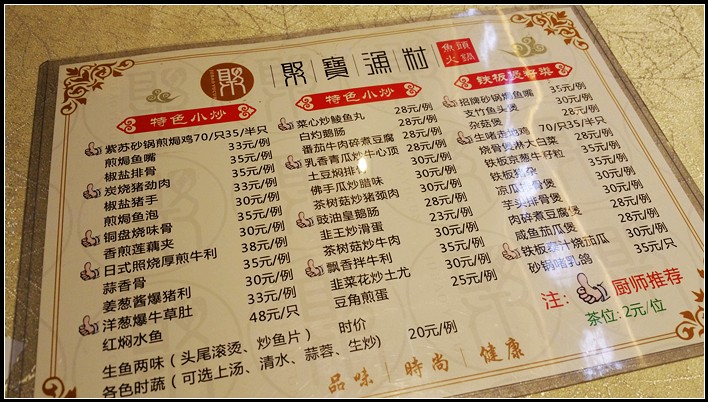 聚
聚寶漁村
魚頭
火鍋
特色小炒
紫苏砂锅煎焗鸡70/只35/半只
煎焗鱼嘴 33元/例
椒盐排骨 35元/例
炭烧猪劲肉 35元/例
椒盐猪手 33元/例
煎焗鱼泡 30元/例
铜盘烧味骨 35元/例
香煎莲藕夹 30元/例
日式照烧厚煎牛利 38元/例
蒜香骨 35元/例
姜葱酱爆猪利 30元/例
洋葱爆牛草肚 33元/例
红焖水鱼 48元/只
生鱼两味（头尾滚烫、炒鱼片） 时价
各色时蔬（可选上汤、清水、蒜蓉、生炒) 20元/例
特色小炒
菜心炒鲮鱼丸 28元/例
白灼鹅肠 28元/例
番茄牛肉碎煮豆腐 28元/例
乳香青瓜炒牛心顶 28元/例
土豆焖排骨 30元/例
佛手瓜炒腊味
茶树菇炒猪颈肉
豉油皇鹅肠 28元/例
韭王炒滑蛋 23元/例
茶树菇炒牛肉
飘香拌牛利 30元/例
韭菜花炒土尤 30元/例
豆角煎蛋 25元/例
铁板煲仔菜
招牌砂锅焗鱼头 35元/例
支竹鱼头煲 30元/例
杂菇煲 28元/例
生啫走地鸡 70/只35/半只
烧骨煲淋大白菜 28元/例
铁板京葱牛仔粒 35元/例
凉瓜排骨煲
芋头排骨煲 30元/例
肉碎煮豆腐煲
咸鱼茄瓜煲 28元/例
铁板酱汁烧茄瓜 28元/例
砂锅啫乳鸽 35元/只
注: 厨师推荐
茶位: 2元/位
品味 | 時尚 | 健康